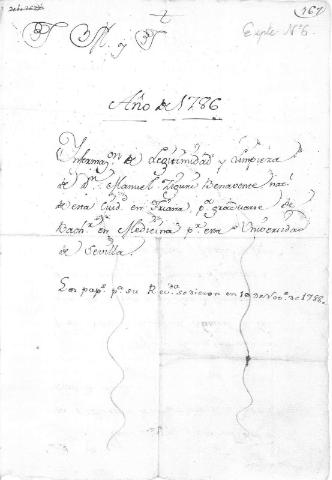 167
Expte Nº 6.
J M y J
Año de 1786
Informazon. de Legitimidad y Limpieza
de Dn. Manuel Benavente natl.
de esta Ciud. en Triana, pa. graduarse de
Bachr. en Medicina pr. esta Universidad
de Sevilla.
Los paps. pa. su Revda. se dieron en 10 de Nove. de 1788.